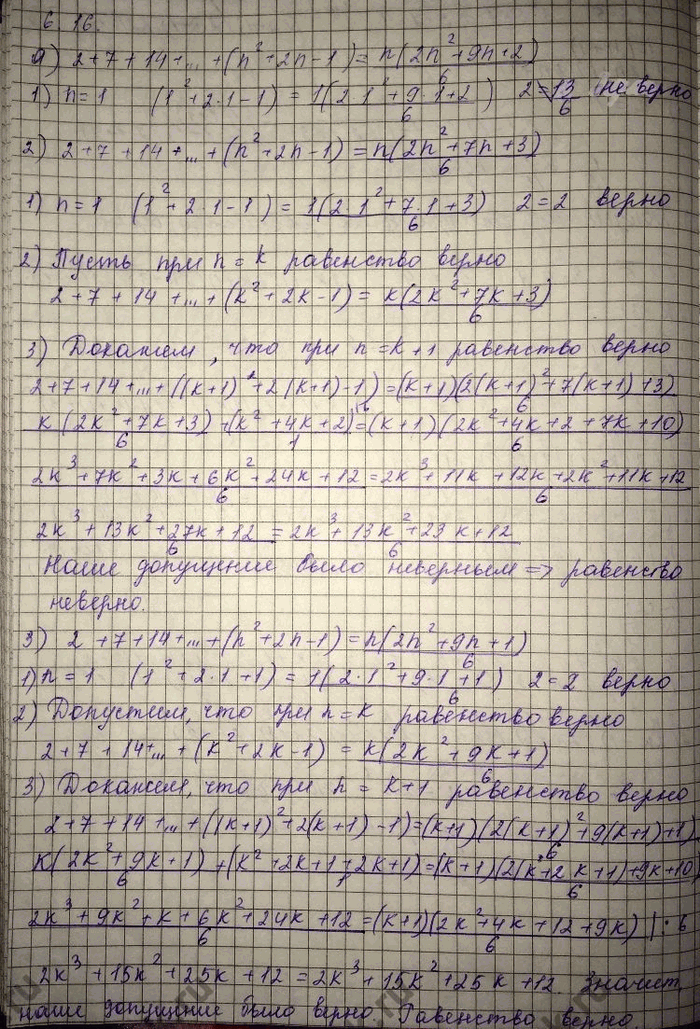 6. 16.
а) 2+7+14+...+(n²+2n-1)=n(2n²+9n+2)/6
1) n=1 (1²+2·1-1)=1(2·1²+9·1+2)/6 2=13/6 (не верно
2) 2+7+14+...+(n²+2n-1)=n(2n²+7n+3)/6
1) n=1 (1²+2·1-1)=1(2·1²+7·1+3)/6 2=2 верно
2) Пусть при n=k равенство верно
2+7+14+...+(k²+2k-1)=k(2k²+7k+3)/6
3) Докажем, что при n=k+1 равенство верно
2+7+14+...+((k+1)²+2(k+1)-1)=(k+1)(2(k+1)²+7(k+1)+3)/6
k(2k²+7k+3)/6+(k²+4k+2)/1=(k+1)(2k²+4k+2+7k+10)/6
2k³+7k²+3k+6k²+24k+12/6=2k³+11k+12k+2k²+11k+12/6
2k³+13k²+27k+12/6=2k³+13k²+23k+12/6
Наше допущение было неверным => равенство
неверно.
3) 2+7+14+...+(n²+2n-1)=n(2n²+9n+1)/6
1) n=1 (1²+2·1+1)=1(2·1²+9·1+1)/6 2=2 верно
2) Допустим, что при n=k равенство верно
2+7+14+...+(k²+2k-1)=k(2k²+9k+1)/6
3) Докажем, что при n=k+1 равенство верно
2+7+14+...+((k+1)²+2(k+1)-1)=(k+1)(2(k+1)²+9(k+1)+1)/6
k(2k²+9k+1)/6+(k²+2k+1+2k+1)/1=(k+1)(2(k²+2k+1)+9k+10)/6
2k³+9k²+k+6k²+24k+12/6=(k+1)(2k²+4k+12+9k)/6 |:6
2k³+15k²+25k+12=2k³+15k²+25k+12. Значит,
наше допущение было верно. Равенство верно